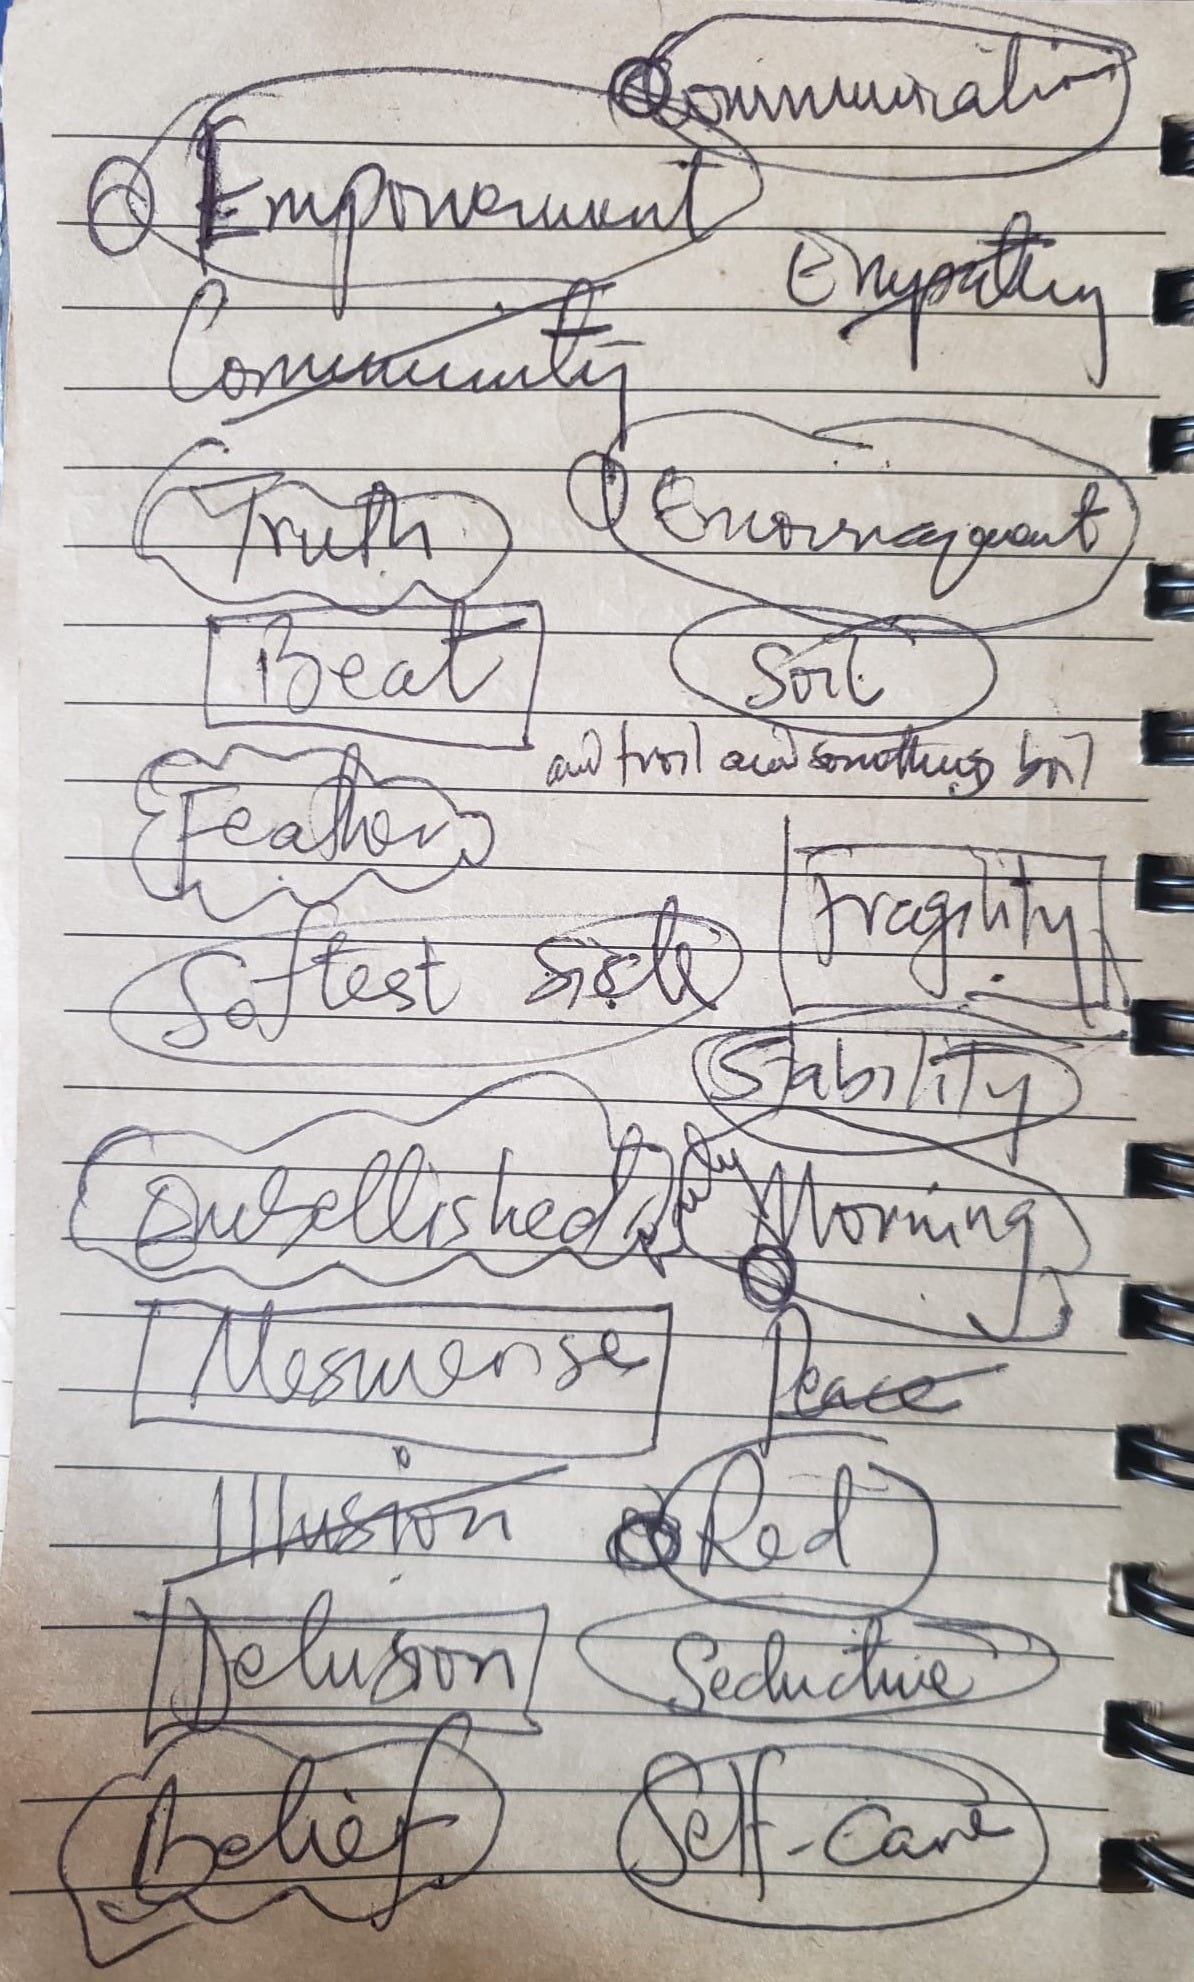 Communication
Empowerment
Empathy
Community
Truth
Encouragement
Beat
Soil
and troil and something boil
Feather
Fragility
Softest side
Stability
Embellished duty
Morning
Mesmerise
Peace
Illusion
Red
Delusion
Seductive
Belief
Self-Care